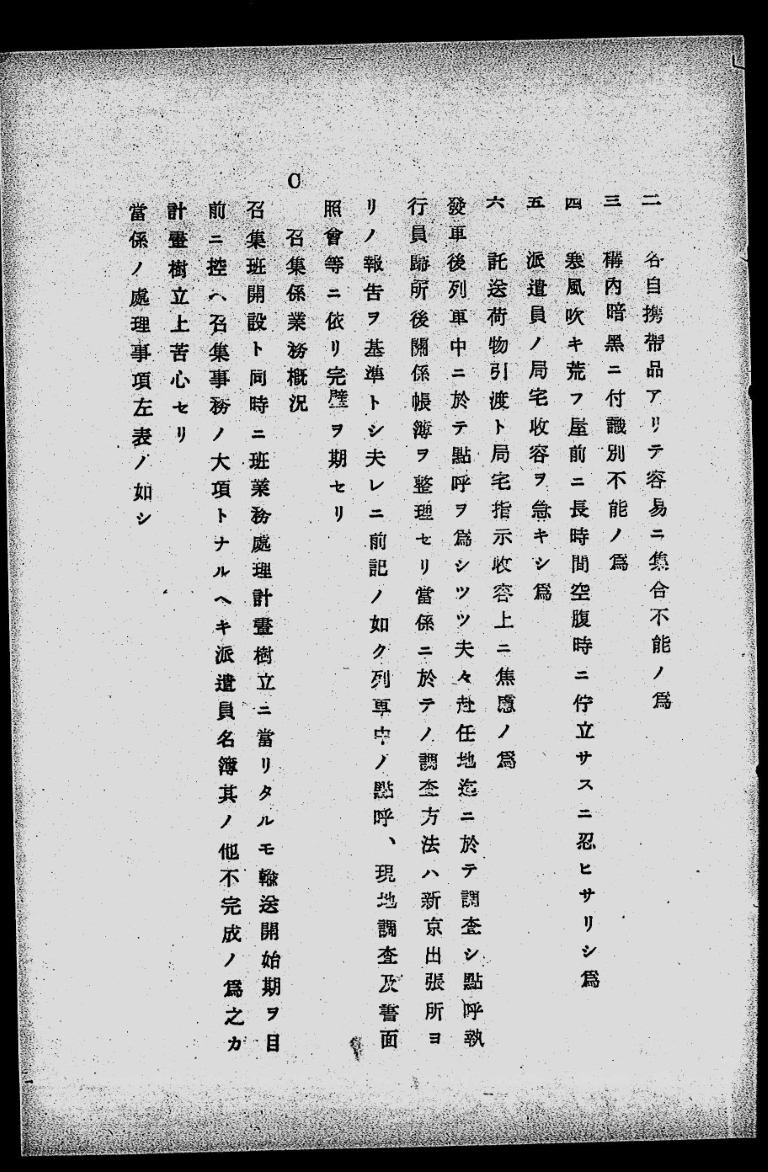 二　各自携帶品アリテ容易ニ集合不能ノ爲
三　構內暗黑ニ付識別不能ノ爲
四　寒風吹キ荒フ屋前ニ長時間空腹時ニ佇立サスニ忍ヒサリシ爲
五　派遣員ノ局宅收容ヲ急キシ爲
六　託送荷物引渡ト局宅指示收容上ニ焦慮ノ爲
發車後列車中ニ於テ點呼ヲ爲シツツ夫々赴任地迄ニ於テ調査シ點呼執
行員歸所後關係帳簿ヲ整理セリ當係ニ於テノ調査方法ハ新京出張所ヨ
リノ報告ヲ基準トシ夫レニ前記ノ如ク列車中ノ點呼、現地調査及書面
照會等ニ依リ完璧ヲ期セリ
〇　召集係業務槪況
召集班開設ト同時ニ班業務處理計畫樹立ニ當リタルモ輸送開始期ヲ目
前ニ控ヘ召集事務ノ大項トナルヘキ派遣員名簿其ノ他不完成ノ爲之カ
計畫樹立上苦心セリ
當係ノ處理事項左表ノ如シ